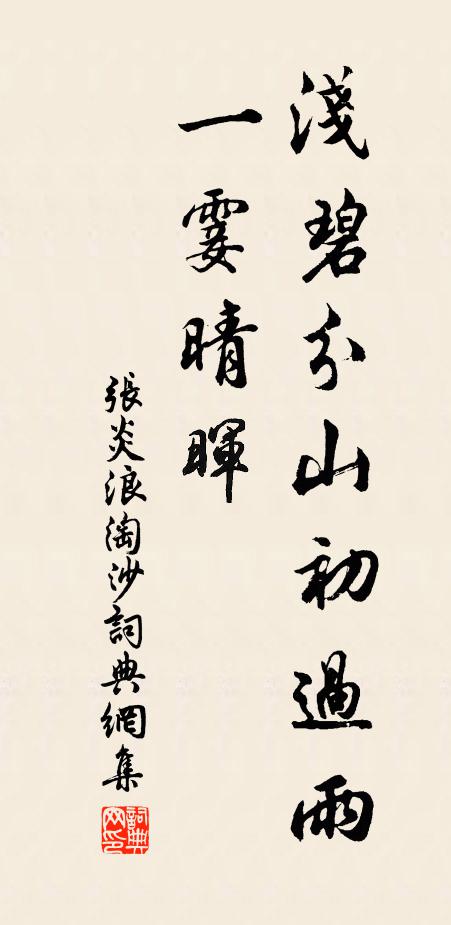 淺碧分山初過雨
一霎晴暉
張炎浪淘沙詞典網集
詞典
网印